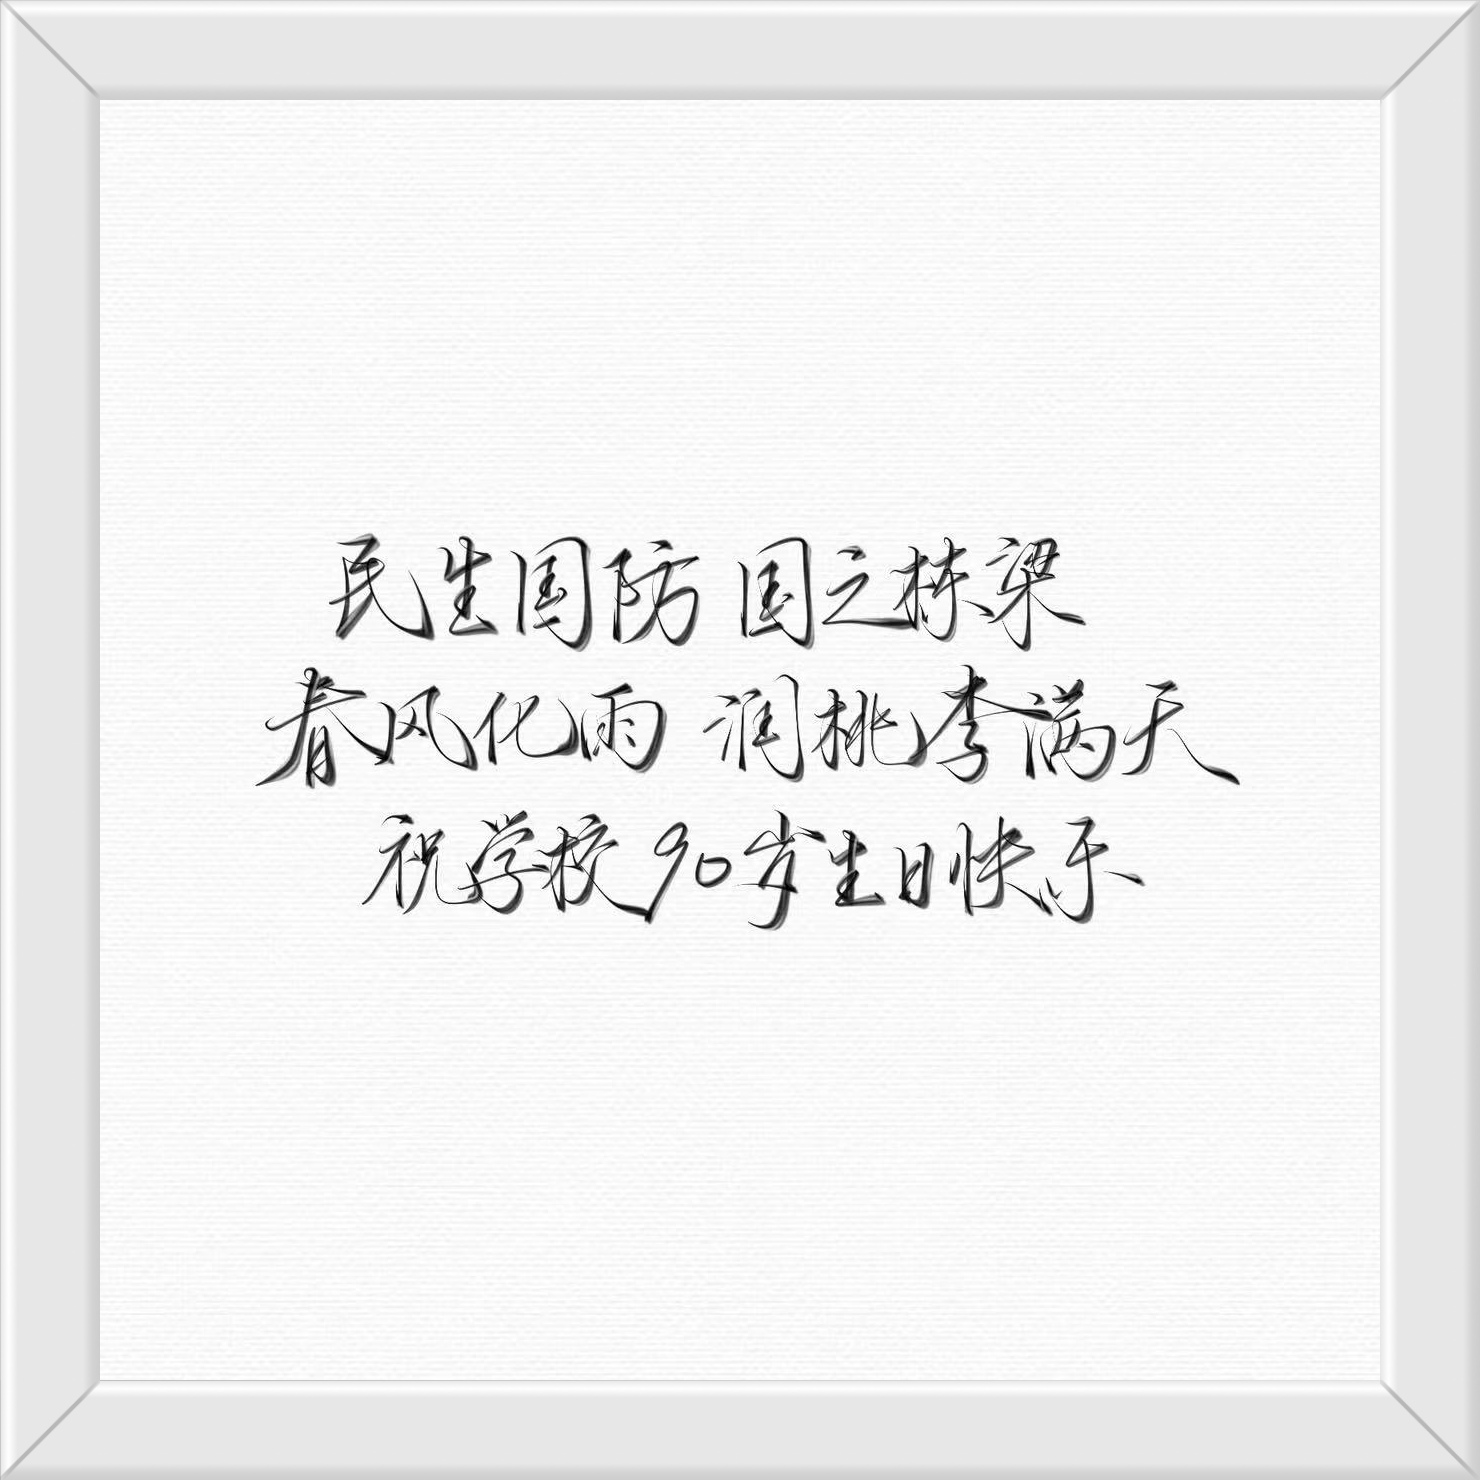 民生国防 国之栋梁
春风化雨 润桃李满天
祝学校90岁生日快乐